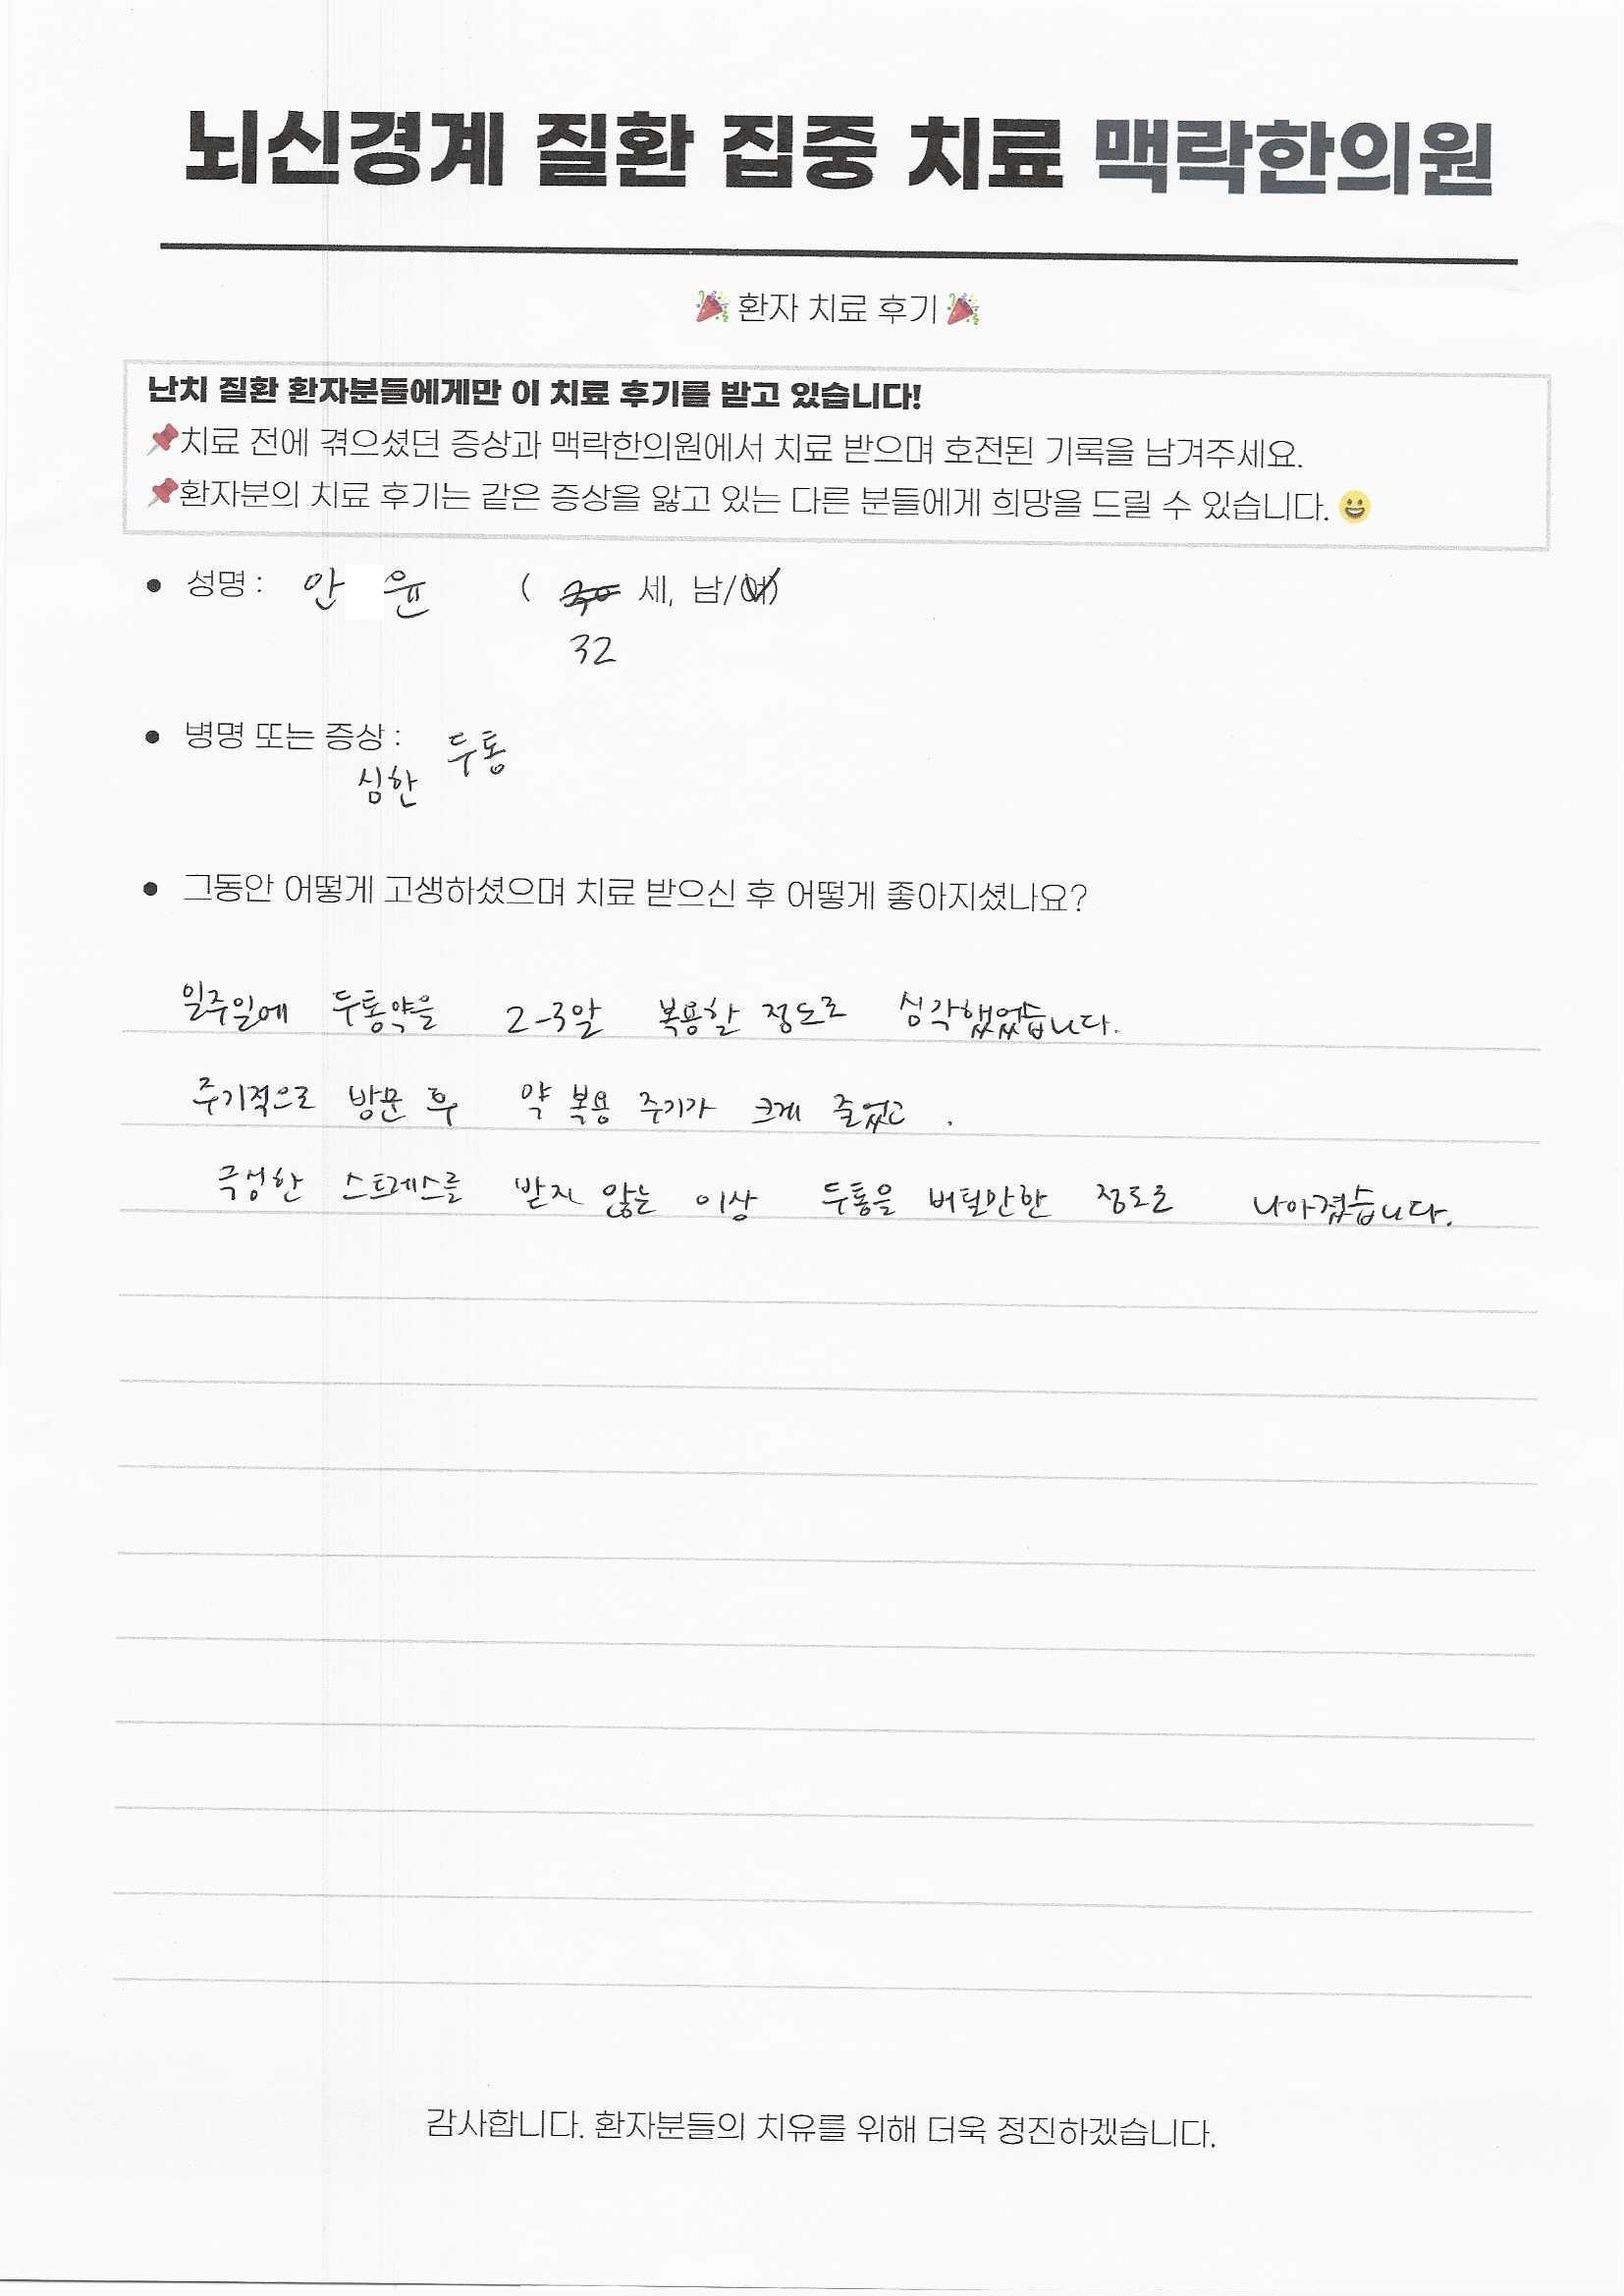 뇌신경계 질환 집중 치료 맥락한의원
환자 치료 후기
난치 질환 환자분들에게만 이 치료 후기를 받고 있습니다!
치료 전에 겪으셨던 증상과 맥락한의원에서 치료 받으며 호전된 기록을 남겨주세요.
환자분의 치료 후기는 같은 증상을 앓고 있는 다른 분들에게 희망을 드릴 수 있습니다.
• 성명 : 안 윤 ( 세, 남/여)
32
• 병명 또는 증상 : 두통
심한
• 그동안 어떻게 고생하셨으며 치료 받으신 후 어떻게 좋아지셨나요?
일주일에 두통약을 2-3알 복용할 정도로 심각했었습니다.
주기적으로 방문 후 약 복용 주기가 크게 줄었고.
극성한 스트레스를 받지 않는 이상 두통을 버틸만한 정도로 나아졌습니다.
감사합니다. 환자분들의 치유를 위해 더욱 정진하겠습니다.